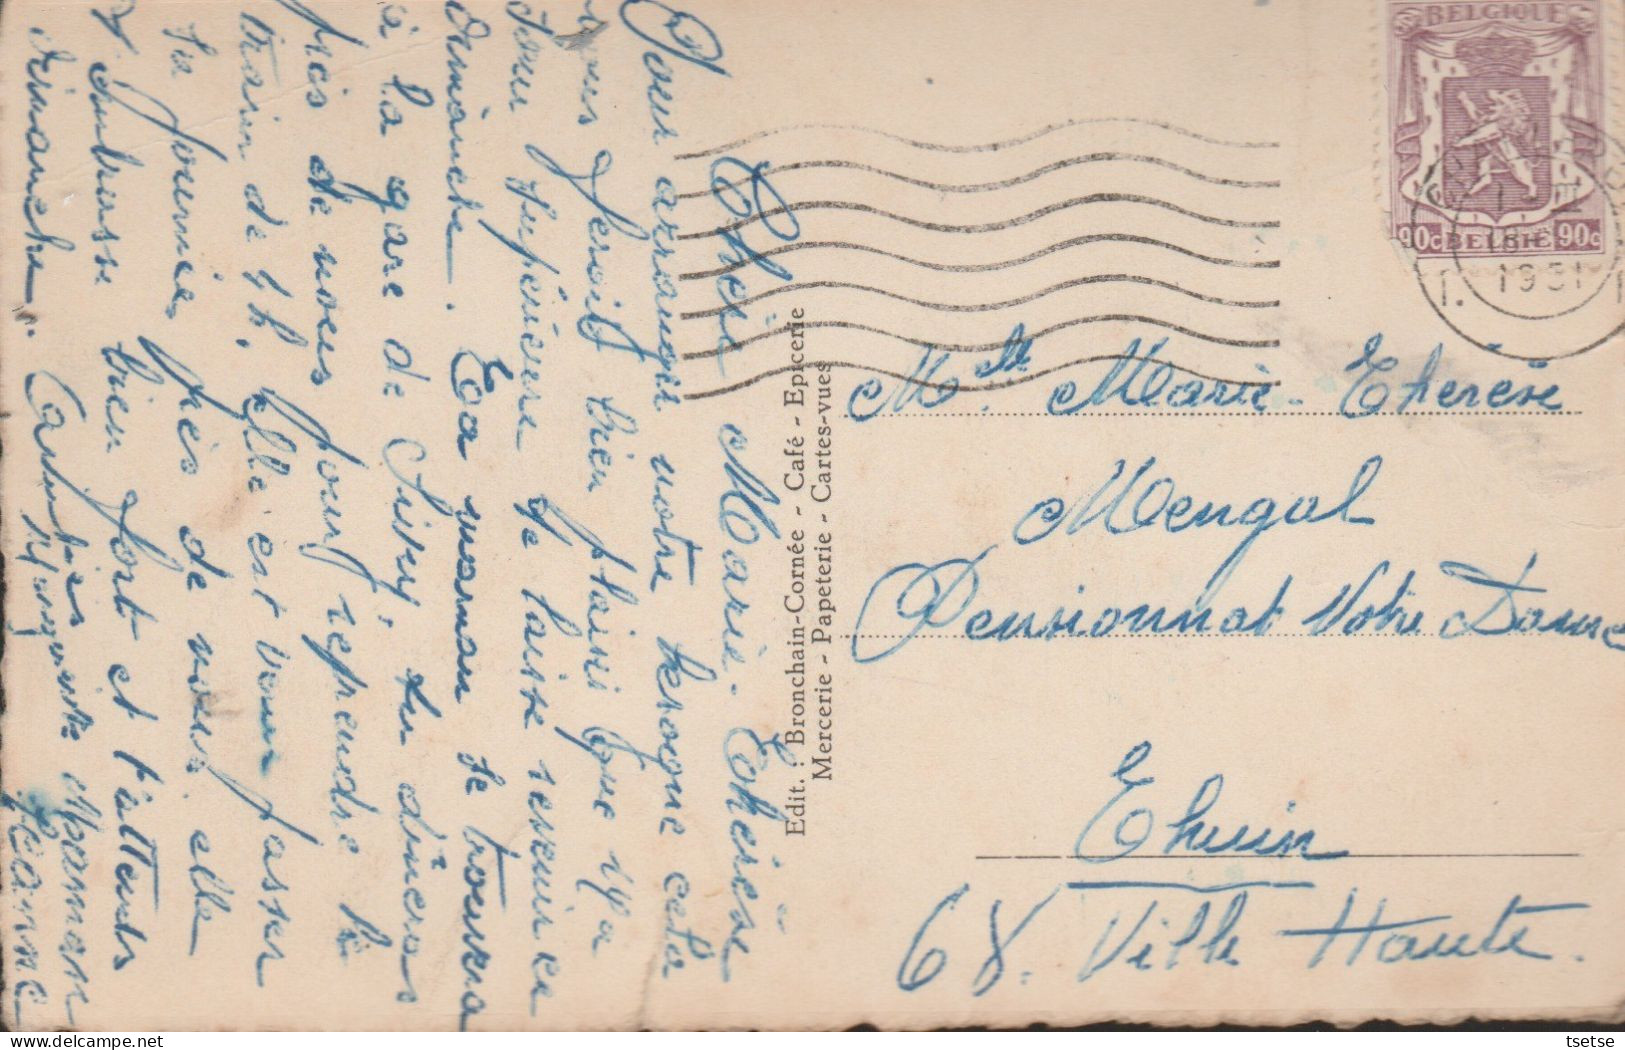 Chère Marie-Thérèse
Pour arranger notre kroque cela
nous ferait bien plaisir que
Sœur supérieure te laisse revenir ce
dimanche. Ta maman te trouvera
à la gare de Sivry, tu dineras
près de nous pour reprendre le
train de 4 h. elle est venue passer
la journée près de nous. elle
t'embrasse bien fort et t'attends
dimanche. Marguerite Maman
Jeanne
Edit. : Bronchain-Cornée - Café - Epicerie
Mercerie - Papeterie - Cartes-vues
BELGIQUE
90c BELGIE 90c
1951
Mlle. Marie-Thérèse
Mengal
Pensionnat Notre Dame
Thuin
68. Ville Haute.
tsetse